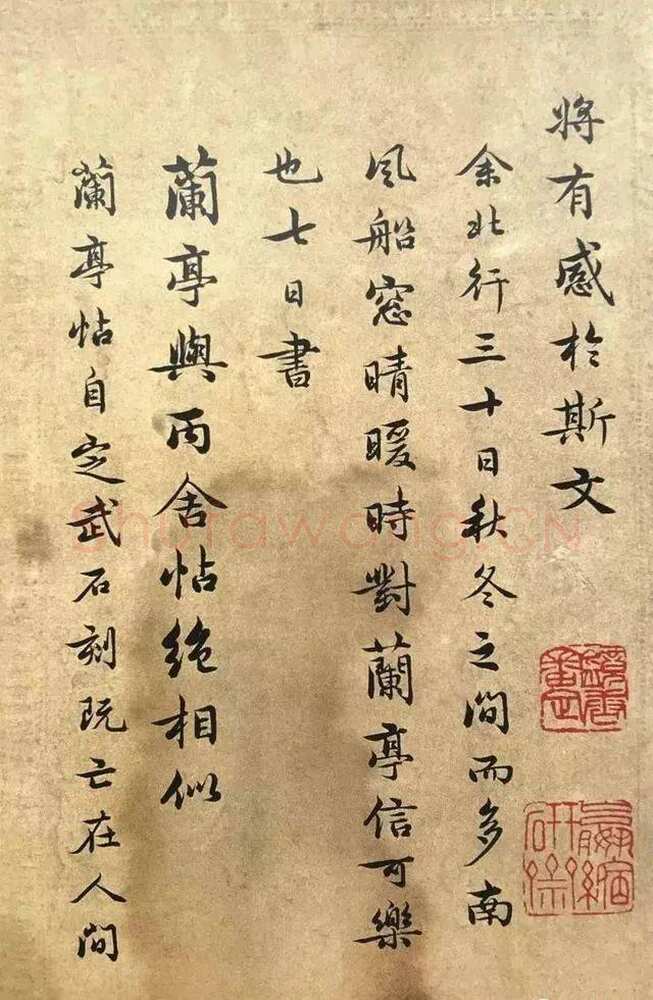 將有感於斯文
余北行三十日秋冬之間而多南
風船窓晴暖時對蘭亭信可樂
也七日書
蘭亭與丙舍帖絶相似
蘭亭帖自定武石刻既亡在人間
Shufawang.CN